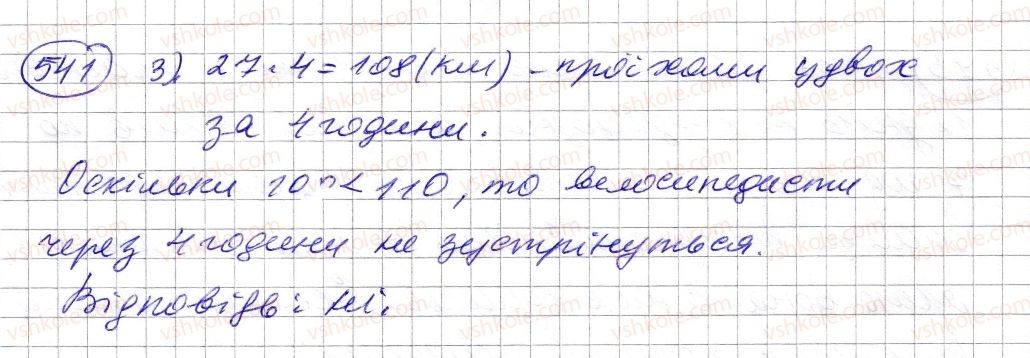 541 3) 27·4=108(км) – проїхали удвох
за 4 години.
Оскільки 108<110, то велосипедисти
через 4 години не зустрінуться.
Відповідь: ні.